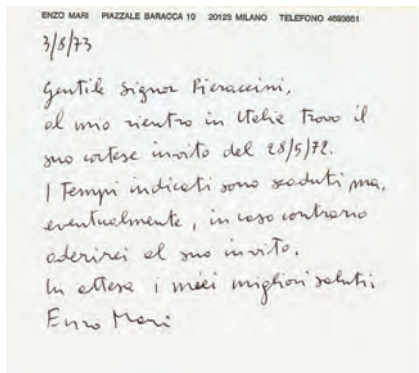 ENZO MARI PIAZZALE BARACCA 10 20123 MILANO TELEFONO 4693651
3/8/73
Gentile Signor Pieraccini,
al mio rientro in Italia trovo il
suo cortese invito del 28/5/72.
I Tempi indicati sono scaduti ma,
eventualmente, in caso contrario
aderirei al suo invito.
In attesa i miei migliori saluti
Enzo Mari